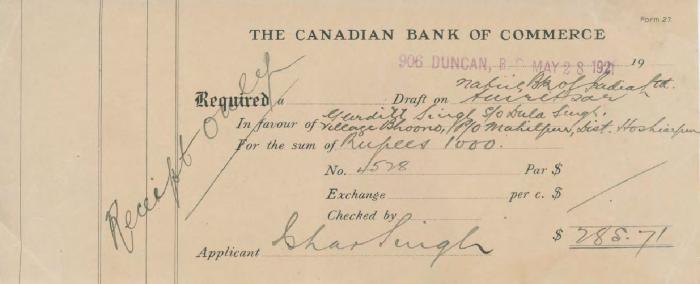 Form 27
THE CANADIAN BANK OF COMMERCE
906 DUNCAN, B C MAY 28 1921 19
Receipt only
Required a Draft on Natnl Bk of India Ltd.
Amritsar
In favour of Gurditt Singh S/o Dula Singh.
Village Bhoono, P/O Mahilpur, Dist. Hoshiarpur
For the sum of Rupees 1000.
No. 4528 Par $
Exchange per c. $
Checked by
Applicant Ishar Singh $ 285.71